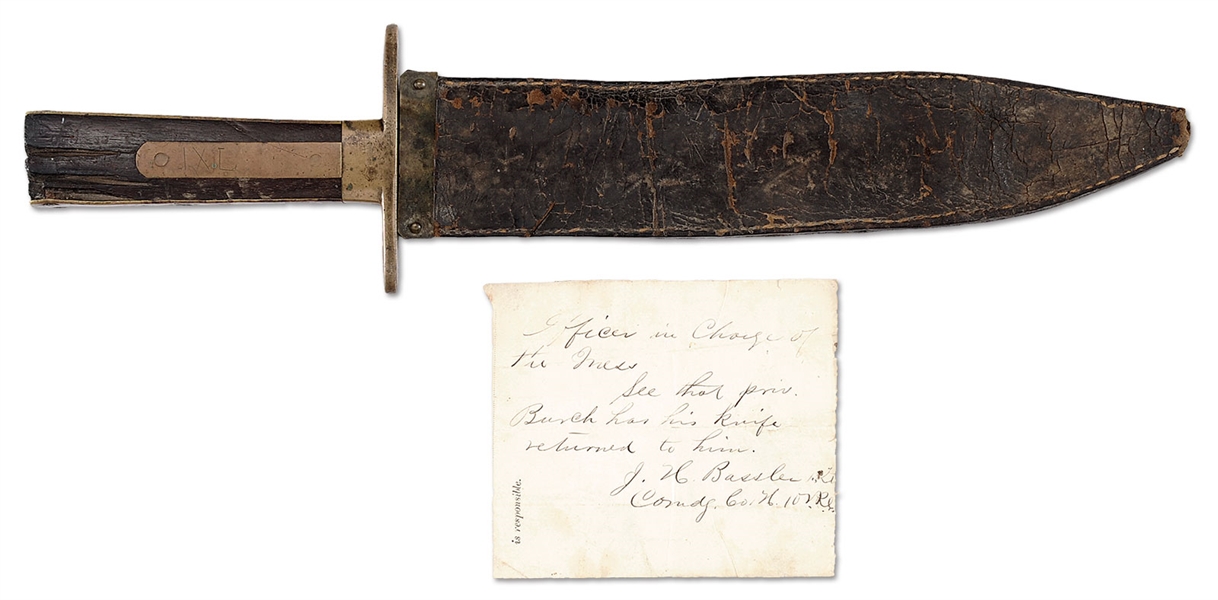 IXL
Officer in Charge of
the Mess
See that priv.
Burch has his knife
returned to him.
J. H. Bassler
Comdg. Co. H.
is responsible.